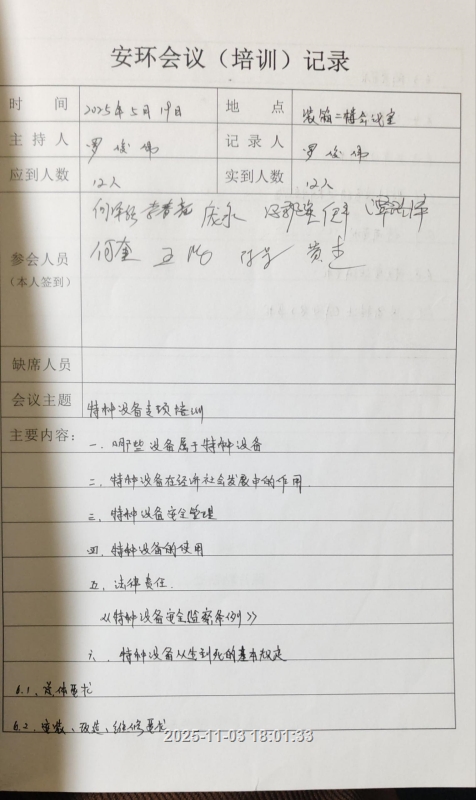 安环会议（培训）记录
时间 2025年5月19日 地点 装箱二楼会议室
主持人 罗俊伟 记录人 罗俊伟
应到人数 12人 实到人数 12人
参会人员
（本人签到）
何奎 黄杰
缺席人员
会议主题 特种设备专项培训
主要内容：
一、哪些设备属于特种设备
二、特种设备在经济社会发展中的作用
三、特种设备安全管理
四、特种设备的使用
五、法律责任.
《特种设备安全监察条例》
六、特种设备从生到死的基本规定
6.1、总体要求
6.2、安装、改造、维修要求
2025-11-03 18:01:33